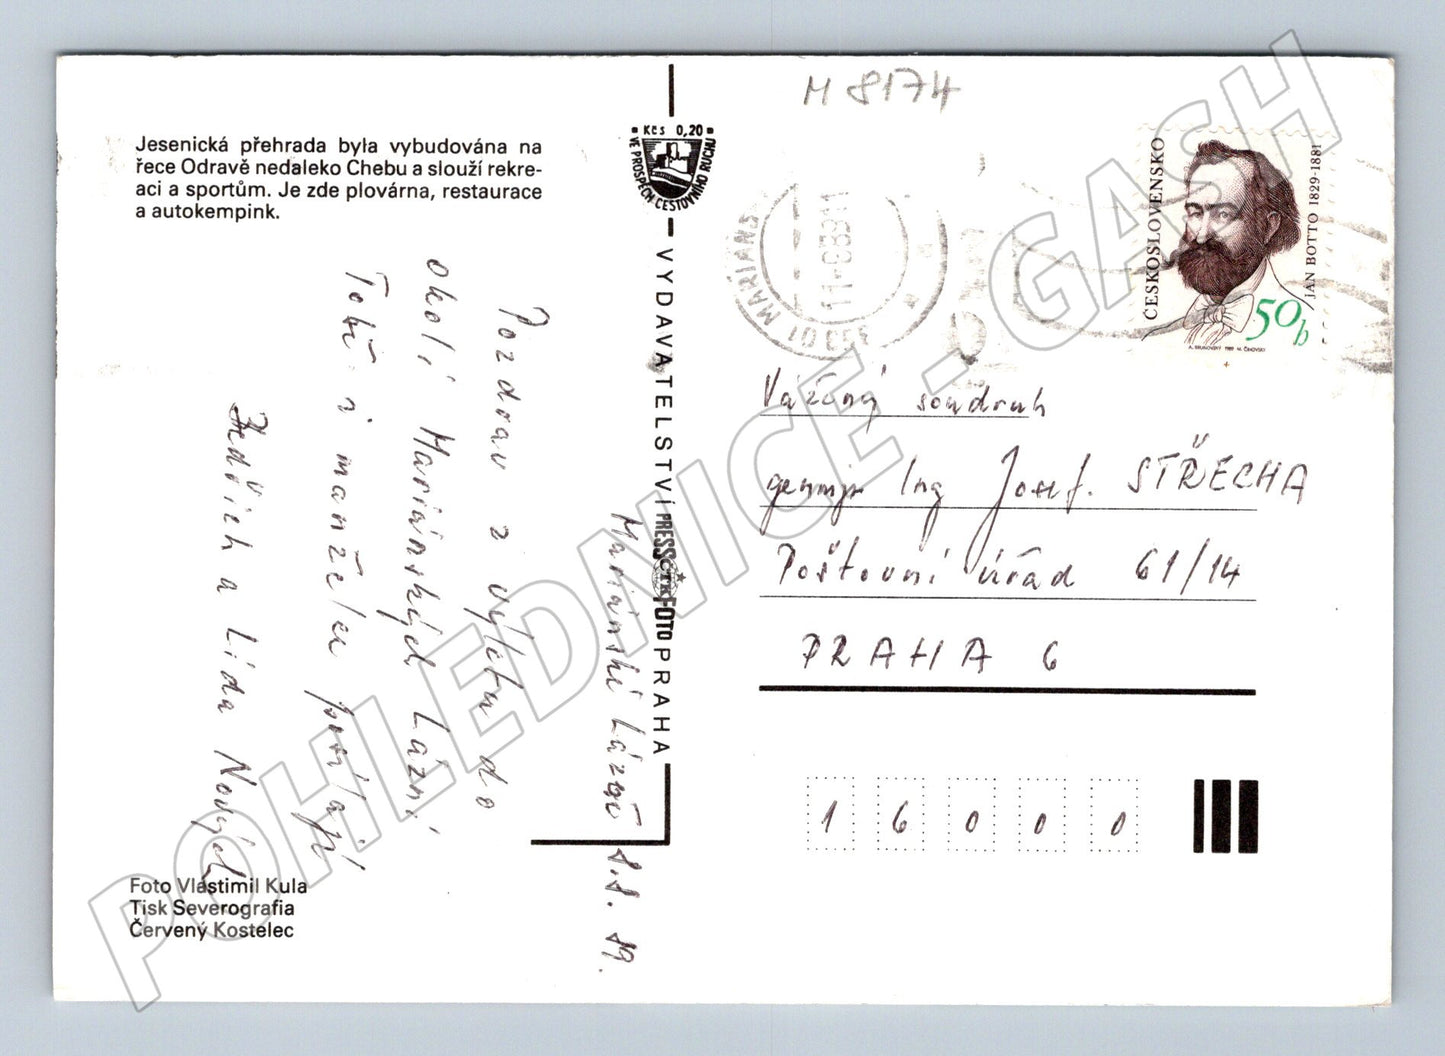 M 8174
Jesenická přehrada byla vybudována na
řece Odravě nedaleko Chebu a slouží rekre-
aci a sportům. Je zde plovárna, restaurace
a autokempink.
Kčs 0,20
VE PROSPĚCH CESTOVNÍHO RUCHU
VYDAVATELSTVÍ PRESSFOTO PRAHA
ČTK
Mariánské Lázně 8.8. 89.
Pozdrav z výletu do
okolí Mariánských Lázní
Tobě i manželce posílají
Bedřich a Lída Nových
Foto Vlastimil Kula
Tisk Severografia
Červený Kostelec
11-8 89 11
01 MARIÁNS
ČESKOSLOVENSKO
JAN BOTTO 1829-1881
50h
Vážený soudruh
Ing Josef. STŘECHA
Poštovní úřad 61/14
PRAHA 6
16000
POHLEDNICE - GASH